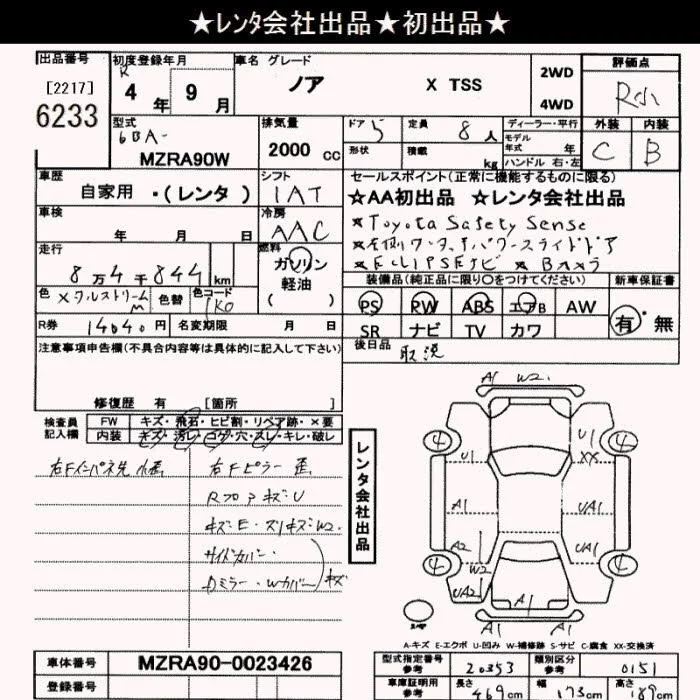 ★レンタ会社出品★初出品★
出品番号
[2217]
6233
初度登録年月
R
4 年 9 月
車名 グレード
ノア X TSS
2WD
4WD
評価点
R
外装 内装
C B
型式
6BA-
MZRA90W
排気量
2000 cc
ドア 5
定員 8 人
形状
積載 kg
ディーラー・平行
モデル
年式 年
ハンドル 右・左
車歴
自家用 ・(レンタ)
シフト
IAT
セールスポイント(正常に機能するものに限る)
☆AA初出品 ☆レンタ会社出品
★Toyota Safety Sense
★左側ワンタッチパワースライドドア
★ECLIPSEナビ ★Bカメラ
車検
年 月 日
冷房
AAC
走行
8万4千844 km
燃料
ガソリン
軽油
( )
装備品(純正品に限り○をつけてください)
PS PW ABS エアB AW
SR ナビ TV カワ
新車保証書
有・無
色
色替
色コード
1K0
R券 14040 円
名変期限 月 日
後日品
取説
注意事項申告欄(不具合内容等は具体的に記入して下さい)
修復歴 有 [箇所 ]
検査員
記入欄
FW キズ・飛石・ヒビ割・リペア跡・×要
内装 キズ・汚レ・コゲ・穴・スレ・キレ・破レ
右Fインパネ先
右Fピラー
RプロアキズU
キズE・スリキズW2.
サイドカバー.
Dミラー・Wカバー キズ
レンタ会社出品
A1 W2.
4 4
U1 U1
XX
A1 UA1
A2 UA1
W2
UA2
4 4
A1
A1 A1
A-キズ E-エクボ U-凹み W-補修跡 S-サビ C-腐食 XX-交換済
車体番号 MZRA90-0023426
登録番号
型式指定番号
参考
20353
類別区分
参考
0151
車庫証明用
参考
長さ
469 cm
幅
173 cm
高さ
189 cm